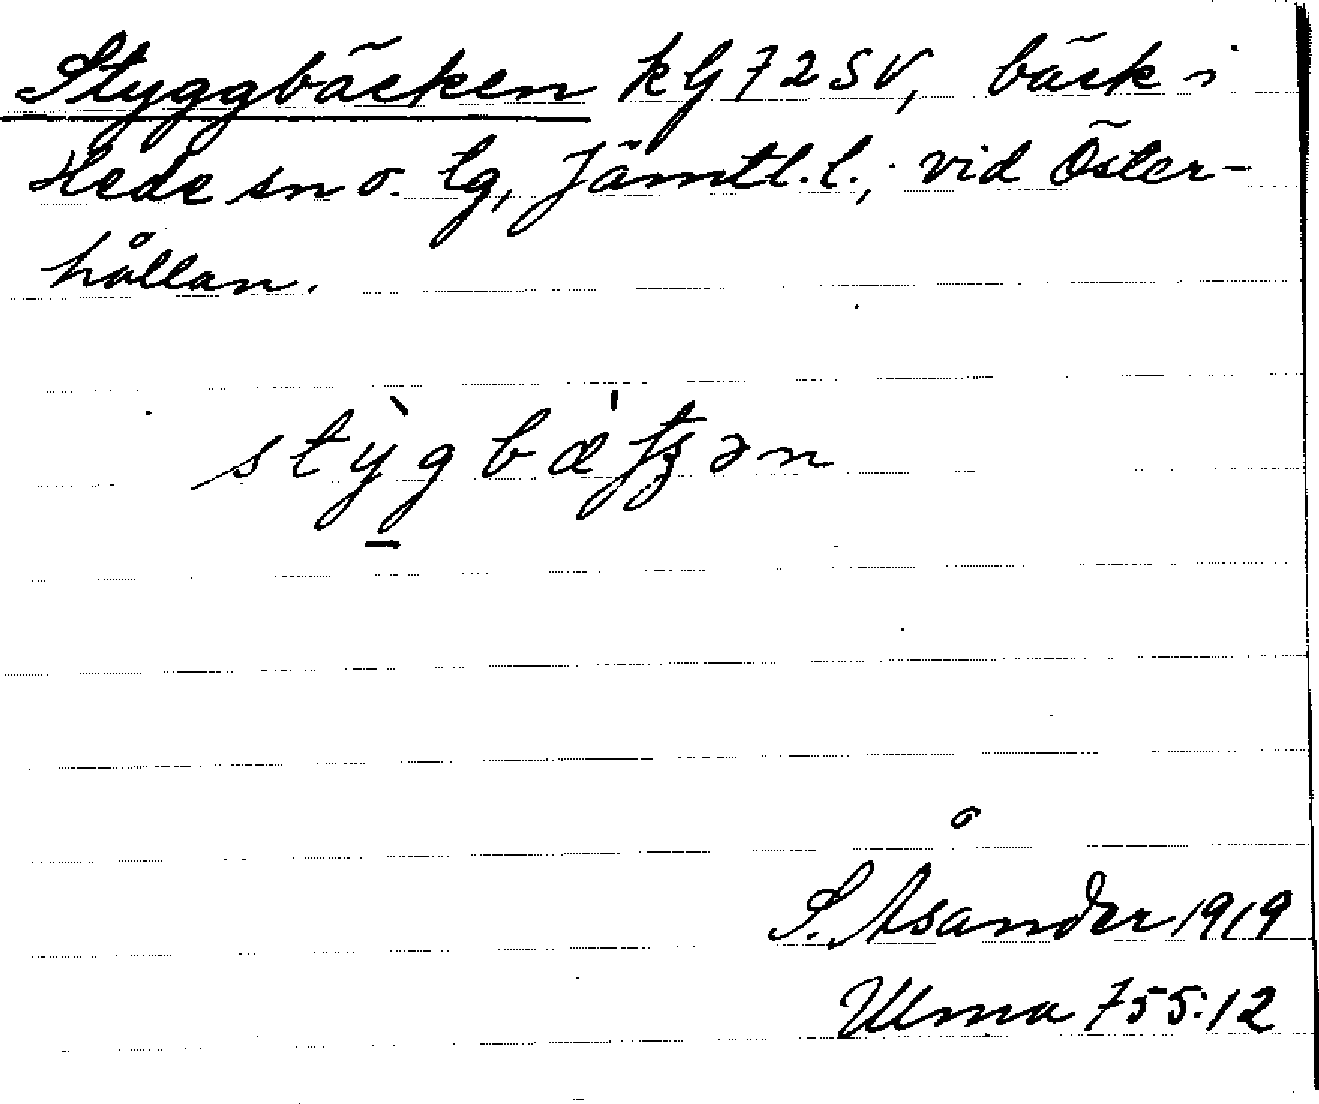 Styggbäcken kbl 72 SV, bäck i
Hede sn o. tg, Jämtl. l., vid Öster-
hållan.
stỳgbæ̀tʂən
S. Åsander 1919
Ulma 755:12